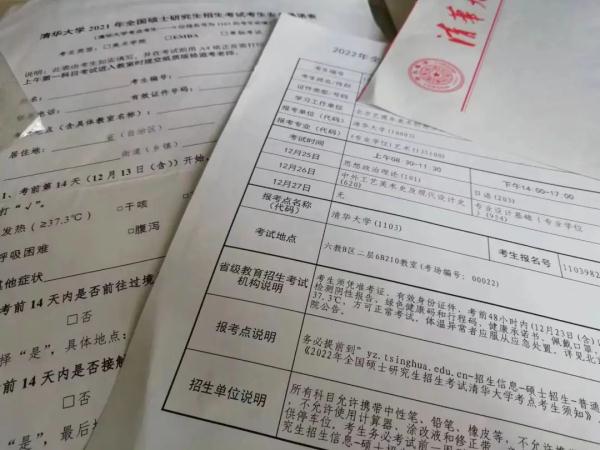 清华大学 2021 年全国硕士研究生招生考试考生
考生类型：□美术学院 □EMBA
说明：此表由考生如实填写，并在考试前用 A4 纸正反面打印
上午第一科目考试进入教室时提交纸质版给监考老师。
姓名： 考生编号：
联系电话： 有效证件号码：
考点（含具体教室名称）
居住地： 省（自治区）
街道（乡镇）
1、考前第 14 天（12 月 13 日（含））开始，
打“√”。
发热（≥37.3℃） □干咳
呼吸困难 □腹泻
其他症状
考前 14 天内是否前往过境
□否
选择“是”，具体地点：
考前 14 天内是否接触
□否
“是”，最后
清华大
2022年全
考生编号
考生姓名/性别
证件类型/号码
学习工作单位
报考单位（代码） 清华大学(10003)
报考专业（代码） (专业学位)艺术(135100)
考试时间 上午08:30-11:30 下午14:00-17:00
12月25日 思想政治理论(101) 日语(203)
12月26日 中外工艺美术史及现代设计史(620) 专业设计基础(专业学位)(924)
12月27日 无
报考点名称（代码） 清华大学(1103) 考生报名号 1103982
考试地点 六教B区二层6B210教室(考场编号: 00022)
省级教育招生考试机构说明
考生须凭准考证、有效身份证件、考前48小时内(12月23日(含)
检测阴性报告、绿色健康码和行程码、健康承诺书，佩戴口罩，
37.3℃，方可正常考试，体温异常者应服从应急处置，详见北京
报考点说明
务必提前到" yz.tsinghua.edu.cn-招生信息-硕士招生-普通
《2022年全国硕士研究生招生考试清华大学考点考生须知》
招生单位说明
所有科目允许携带中性笔、铅笔、橡皮等，不允许携
，不允许使用计算器、涂改液和修正带
供停车位。考生务必考试前一周
究生招生信息-硕士招生-